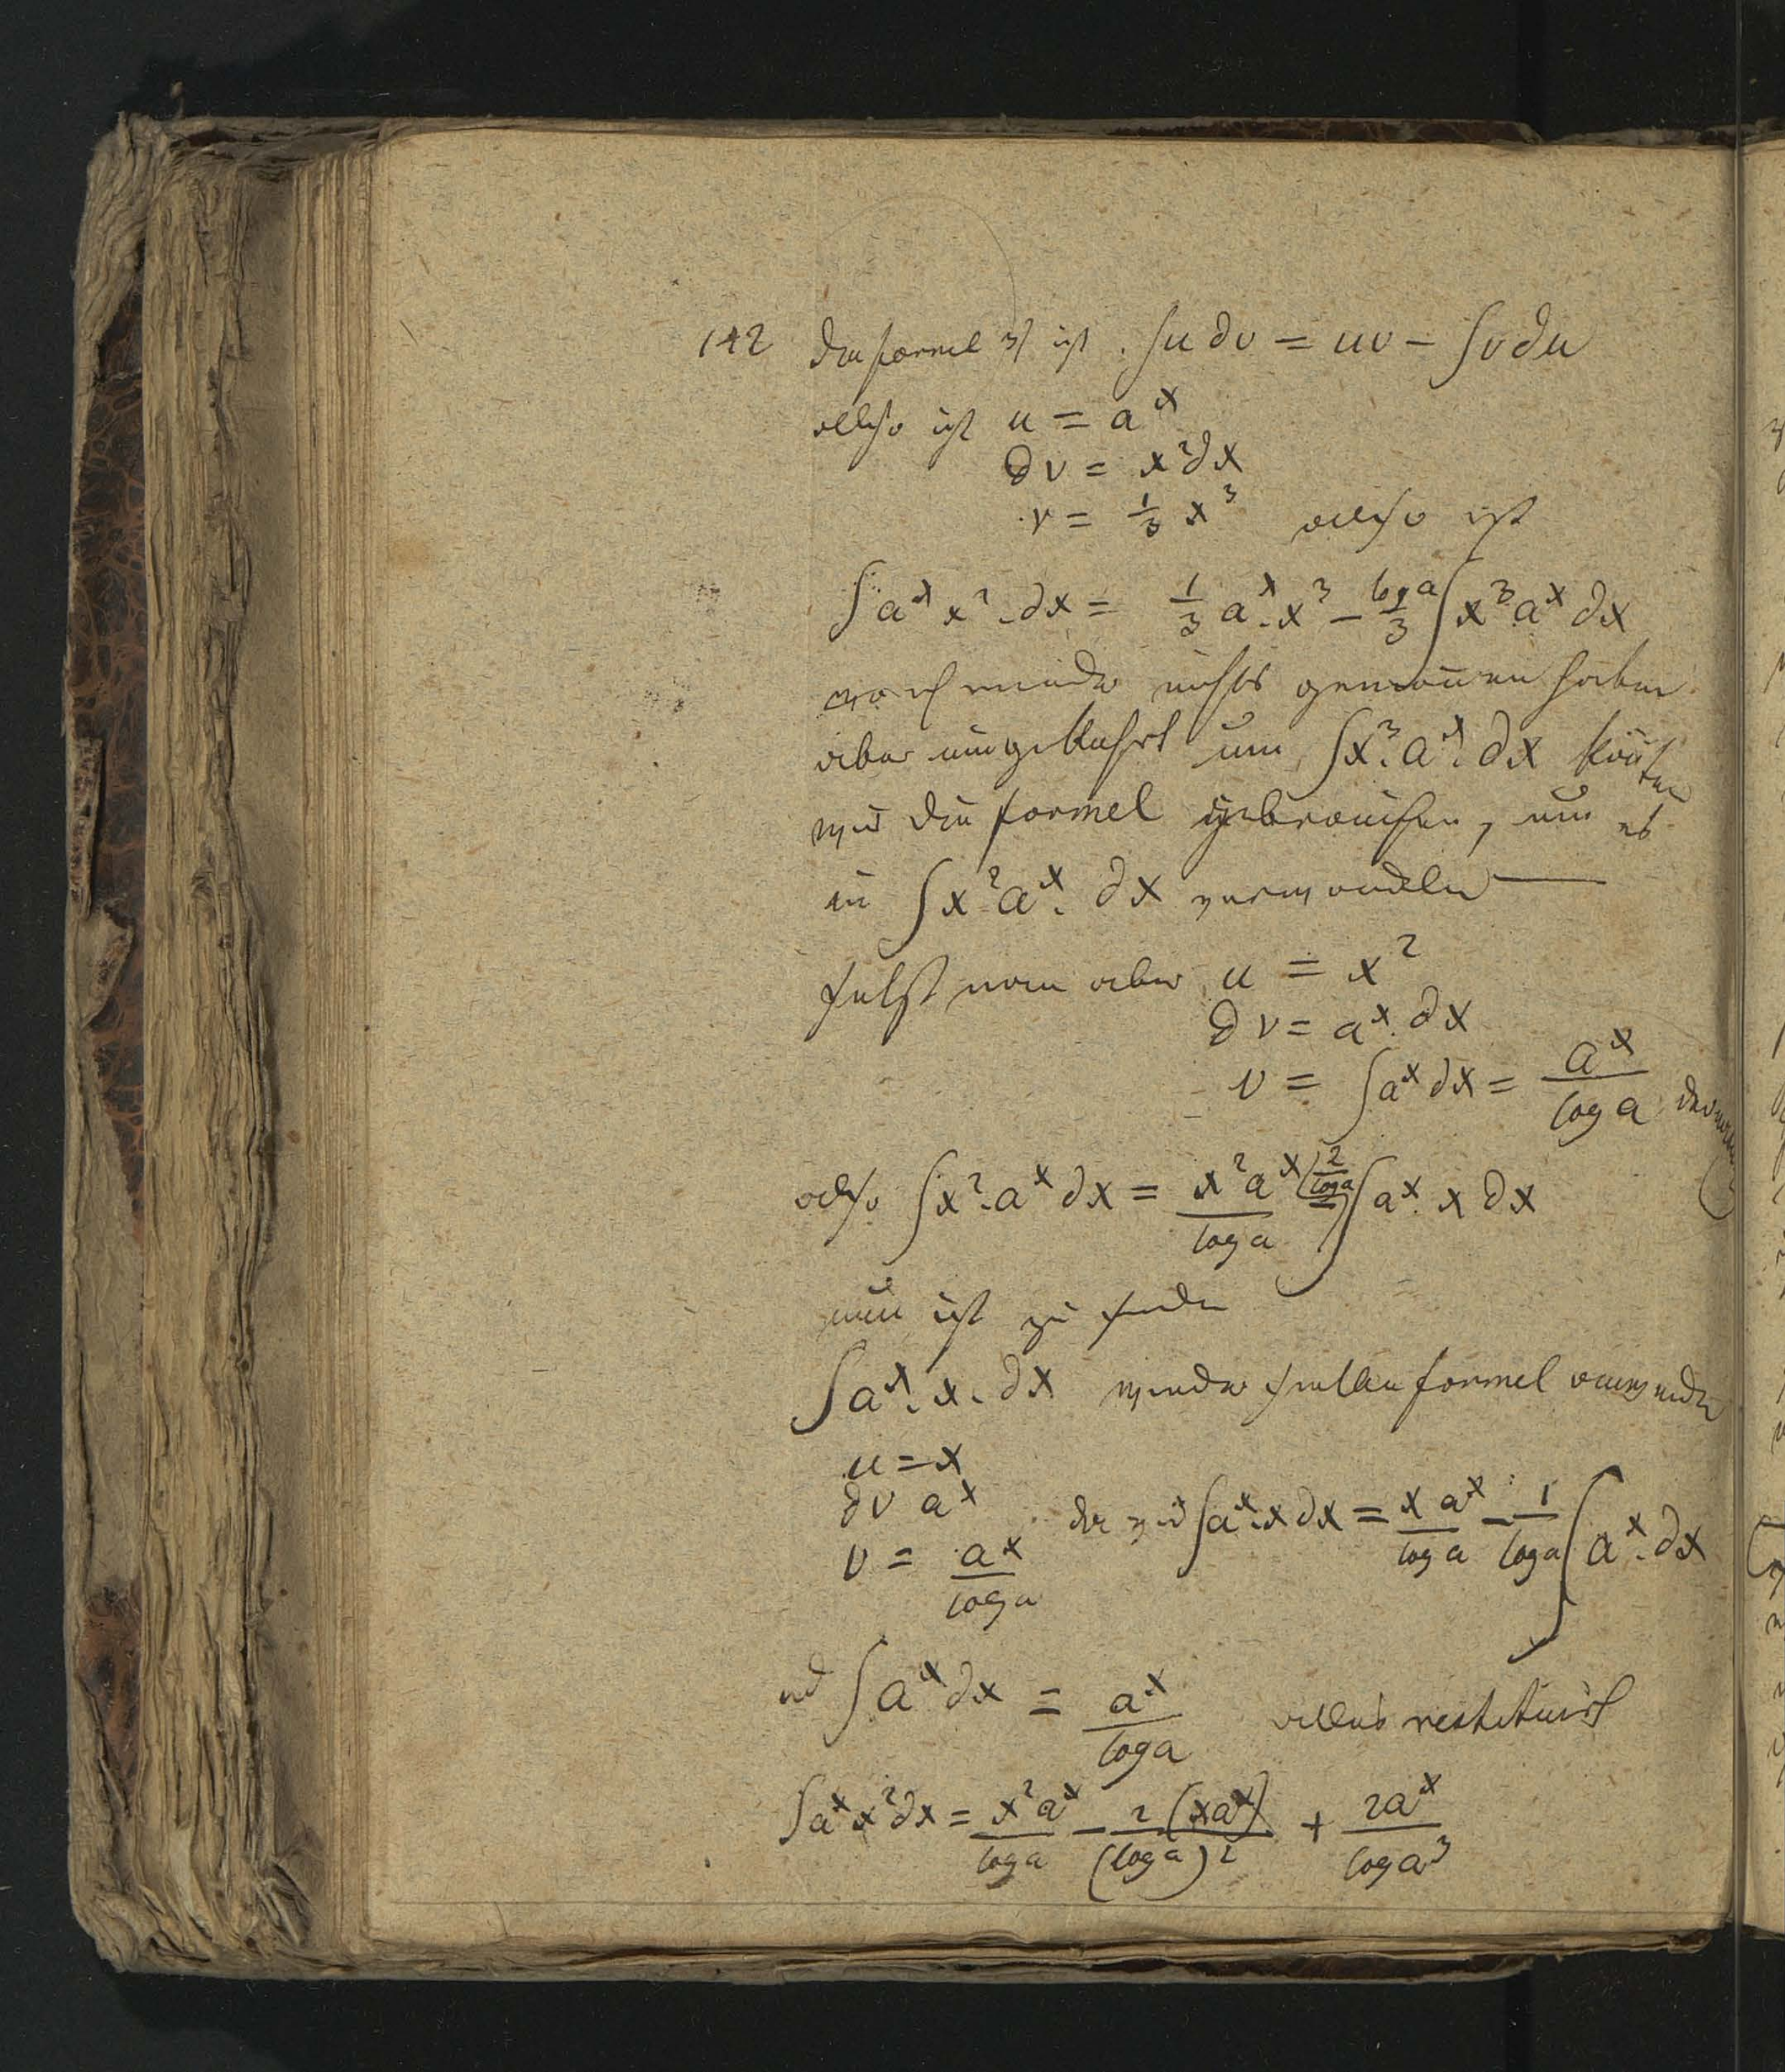 142 die formel ist . ∫u∂v = uv − ∫v∂u
allso ist u = a^x
∂v = x²∂x
v = ⅓ x³ allso ist
∫a^x x².∂x = ⅓ a^x.x³ − (log a)/3 ∫x³.a^x ∂x
nichts gewonnen haben
aber umgekehrt um ∫x³.a^x.∂x könten
wir die formel gebrauchen, um es
in ∫x².a^x.∂x verwandeln —
sezt man aber u = x²
∂v = a^x.∂x
v = ∫a^x ∂x = a^x/log a
also ∫x².a^x ∂x = x²a^x/log a (2/log a) ∫a^x.x ∂x
nun ist zu finden
∫a^x.x.∂x wieder formel
u = x
∂v a^x
v = a^x/log a ∫a^x.x∂x = x a^x/log a − 1/log a ∫a^x.∂x
und ∫a^x∂x = a^x/log a alles restituirt
∫a^x x²∂x = x²a^x/log a − 2(xa^x)/(log a)² + 2a^x/log a³